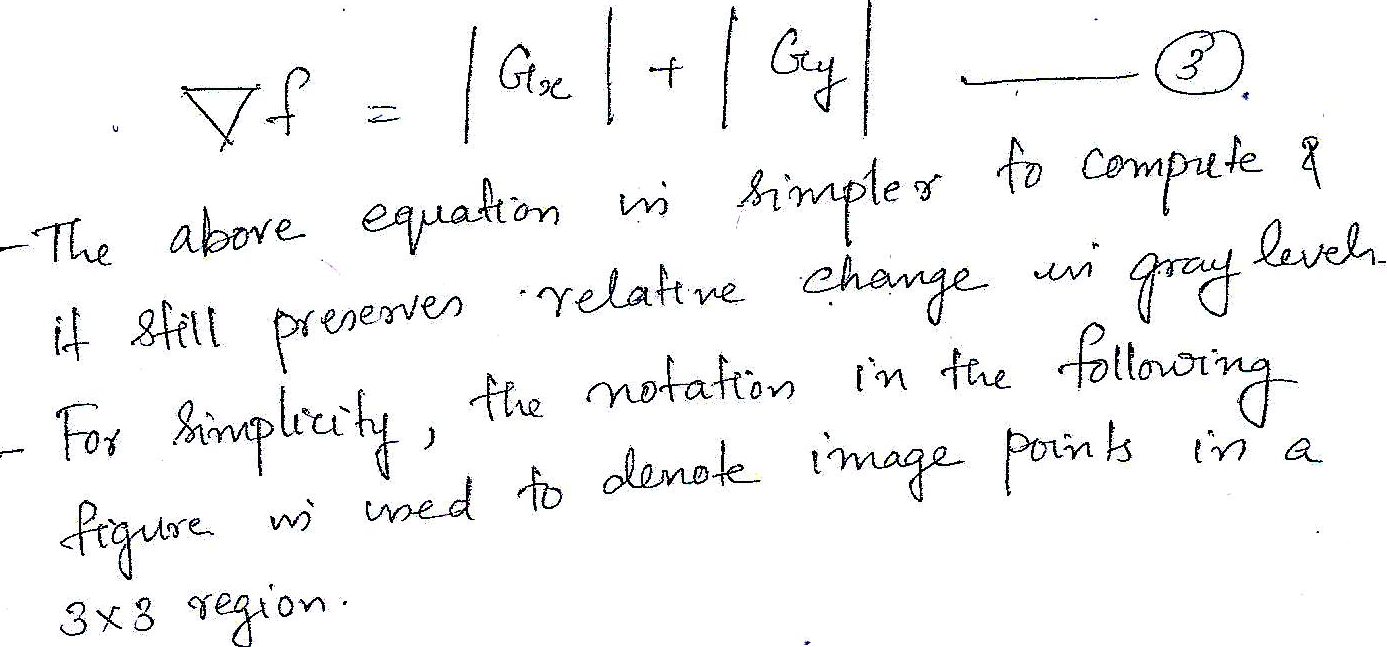 ∇f = |Gx| + |Gy| —— ③
- The above equation is simpler to compute &
it still preserves relative change in gray levels
- For simplicity, the notation in the following
figure is used to denote image points in a
3x3 region.